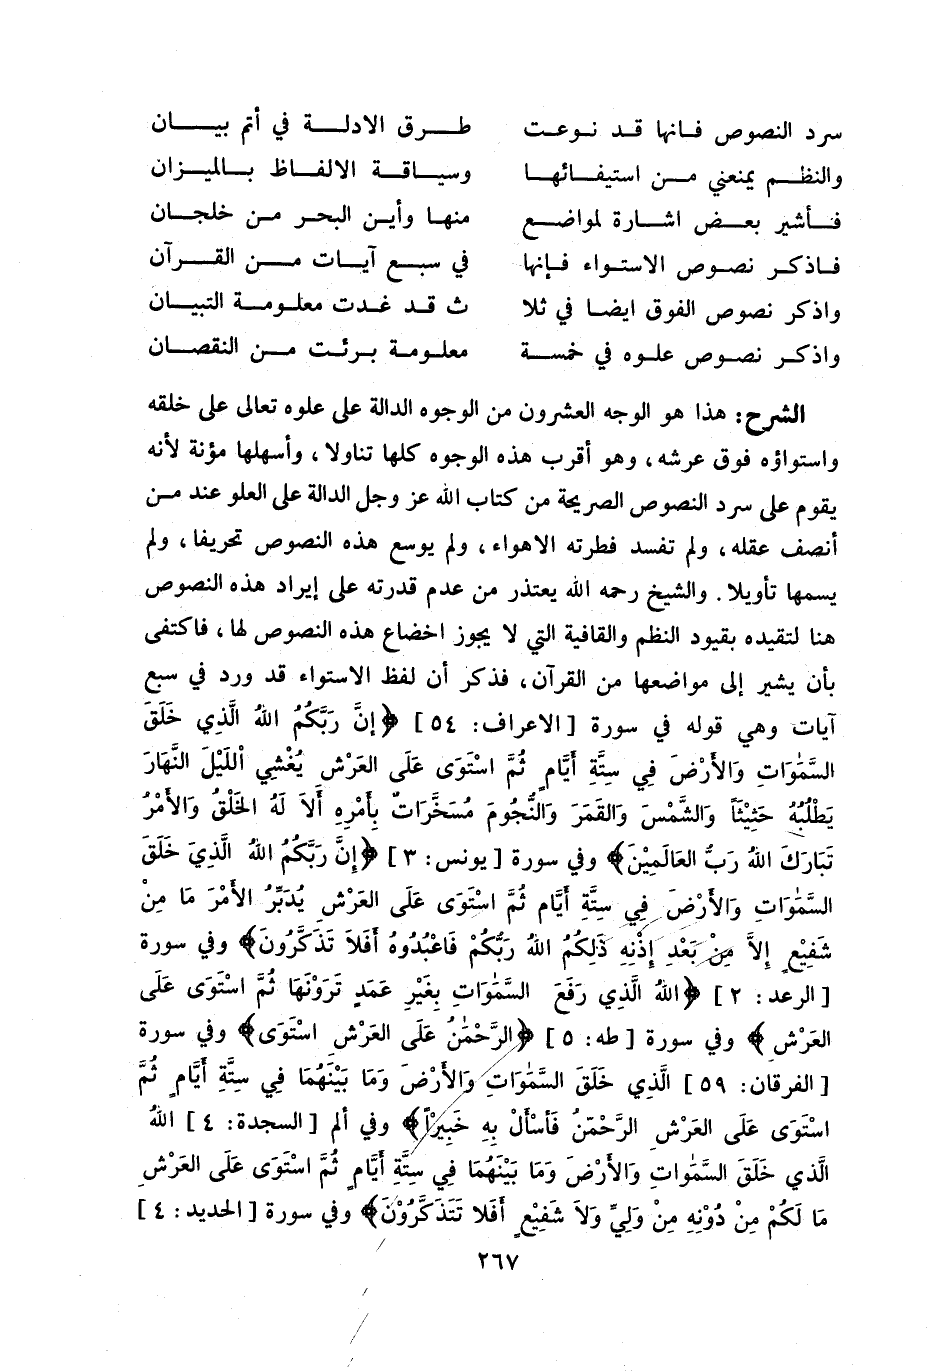 سرد النصوص فانها قد نوعت طرق الادلة في أتم بيان
والنظم يمنعني من استيفائها وسياقة الالفاظ بالميزان
فأشير بعض اشارة لمواضع منها وأين البحر من خلجان
فاذكر نصوص الاستواء فإنها في سبع آيات من القرآن
واذكر نصوص الفوق ايضا في ثلا ث قد غدت معلومة التبيان
واذكر نصوص علوه في خمسة معلومة برئت من النقصان
الشرح: هذا هو الوجه العشرون من الوجوه الدالة على علوه تعالى على خلقه
واستواؤه فوق عرشه، وهو أقرب هذه الوجوه كلها تناولا، وأسهلها مؤنة لأنه
يقوم على سرد النصوص الصريحة من كتاب الله عز وجل الدالة على العلو عند من
أنصف عقله، ولم تفسد فطرته الاهواء، ولم يوسع هذه النصوص تحريفا، ولم
يسمها تأويلا. والشيخ رحمه الله يعتذر من عدم قدرته على إيراد هذه النصوص
هنا لتقيده بقيود النظم والقافية التي لا يجوز اخضاع هذه النصوص لها، فاكتفى
بأن يشير إلى مواضعها من القرآن، فذكر أن لفظ الاستواء قد ورد في سبع
آيات وهي قوله في سورة [الاعراف: ٥٤] ﴿إنَّ رَبَّكُمُ اللهُ الَّذِي خَلَقَ
السَّمٰوَاتِ وَالأَرْضَ فِي سِتَّةِ أَيَّامٍ ثُمَّ اسْتَوَى عَلَى العَرْشِ يُغْشِي اللَّيْلَ النَّهَارَ
يَطْلُبُهُ حَثِيْثاً وَالشَّمْسَ وَالقَمَرَ وَالنُّجُومَ مُسَخَّرَاتٌ بِأَمْرِهِ أَلاَ لَهُ الخَلْقُ وَالأَمْرُ
تَبَارَكَ اللهُ رَبُّ العَالَمِيْنَ﴾ وفي سورة [يونس: ٣] ﴿إنَّ رَبَّكُمُ اللهُ الَّذِيَ خَلَقَ
السَّمٰوَاتِ وَالأَرْضَ فِي سِتَّةِ أَيَّامٍ ثُمَّ اسْتَوَى عَلَى العَرْشِ يُدَبِّرُ الأَمْرَ مَا مِنْ
شَفِيْعٍ إلاَّ مِنْ بَعْدِ إذْنِهِ ذَلِكُمُ اللهُ رَبُّكُمْ فَاعْبُدُوهُ أَفَلاَ تَذَكَّرُونَ﴾ وفي سورة
[الرعد: ٢] ﴿اللهُ الَّذِي رَفَعَ السَّمٰوَاتِ بِغَيْرِ عَمَدٍ تَرَوْنَهَا ثُمَّ اسْتَوَى عَلَى
العَرْشِ﴾ وفي سورة [طه: ٥] ﴿الرَّحْمٰنُ عَلَى العَرْشِ اسْتَوَى﴾ وفي سورة
[الفرقان: ٥٩] الَّذِي خَلَقَ السَّمٰوَاتِ وَالأَرْضَ وَمَا بَيْنَهُمَا فِي سِتَّةِ أَيَّامٍ ثُمَّ
اسْتَوَى عَلَى العَرْشِ الرَّحْمٰنُ فَأَسْأَلْ بِهِ خَبِيْراً﴾ وفي ألم [السجدة: ٤] اللهُ
الَّذي خَلَقَ السَّمٰوَاتِ وَالأَرْضَ وَمَا بَيْنَهُمَا فِي سِتَّةِ أَيَّامٍ ثُمَّ اسْتَوَى عَلَى العَرْشِ
مَا لَكُمْ مِنْ دُوْنِهِ مِنْ وَلِيٍّ وَلاَ شَفِيْعٍ أَفَلا تَتَذَكَّرُوْنَ﴾ وفي سورة [الحديد: ٤]
٢٦٧